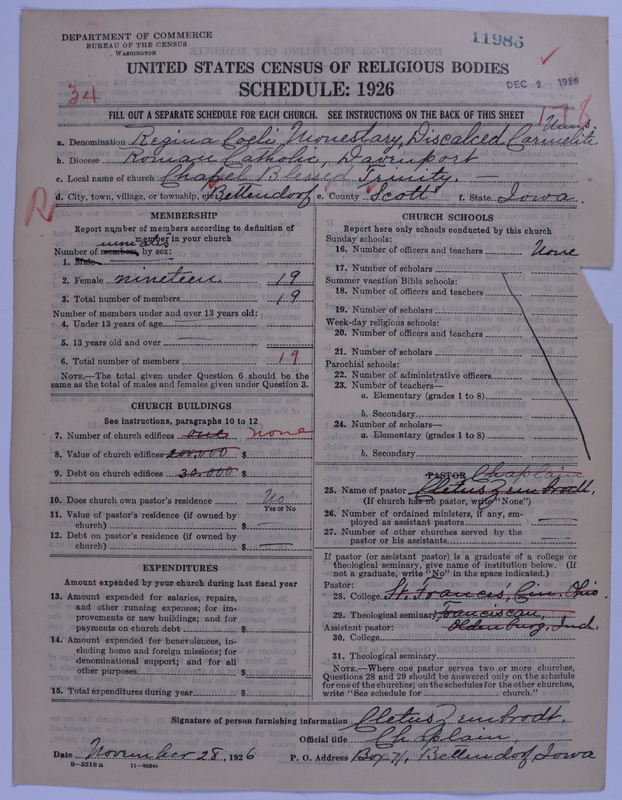 DEPARTMENT OF COMMERCE
BUREAU OF THE CENSUS
WASHINGTON
11985
UNITED STATES CENSUS OF RELIGIOUS BODIES
DEC 2 1926
SCHEDULE: 1926
34
178
FILL OUT A SEPARATE SCHEDULE FOR EACH CHURCH. SEE INSTRUCTIONS ON THE BACK OF THIS SHEET
Nuns
a. Denomination Regina Coeli, Monestary, Discalced Carmelite
b. Diocese Roman Catholic, Davenport
c. Local name of church Chapel Blessed Trinity. —
d. City, town, village, or township, etc. Bettendorf e. County Scott f. State Iowa.
R
MEMBERSHIP
Report number of members according to definition of member in your church
Number of members, by sex:
1. Male
2. Female nineteen. 19
3. Total number of members 19
Number of members under and over 13 years old:
4. Under 13 years of age
5. 13 years old and over
6. Total number of members 19
NOTE.—The total given under Question 6 should be the
same as the total of males and females given under Question 3.
CHURCH BUILDINGS
See instructions, paragraphs 10 to 12
7. Number of church edifices one none
8. Value of church edifices 200,000 $
9. Debt on church edifices 30,000 $
10. Does church own pastor's residence No
Yes or No
11. Value of pastor's residence (if owned by
church) $
12. Debt on pastor's residence (if owned by
church) $
EXPENDITURES
Amount expended by your church during last fiscal year
13. Amount expended for salaries, repairs,
and other running expenses; for im-
provements or new buildings; and for
payments on church debt $
14. Amount expended for benevolences, in-
cluding home and foreign missions; for
denominational support; and for all
other purposes $
15. Total expenditures during year $
CHURCH SCHOOLS
Report here only schools conducted by this church
Sunday schools:
16. Number of officers and teachers None
17. Number of scholars
Summer vacation Bible schools:
18. Number of officers and teachers
19. Number of scholars
Week-day religious schools:
20. Number of officers and teachers
21. Number of scholars
Parochial schools:
22. Number of administrative officers
23. Number of teachers—
a. Elementary (grades 1 to 8)
b. Secondary
24. Number of scholars—
a. Elementary (grades 1 to 8)
b. Secondary
PASTOR Chaplain
25. Name of pastor Cletus Zembrodt,
(If church has no pastor, write "None")
26. Number of ordained ministers, if any, em-
ployed as assistant pastors
27. Number of other churches served by the
pastor or his assistants
If pastor (or assistant pastor) is a graduate of a college or
theological seminary, give name of institution below. (If
not a graduate, write "No" in the space indicated.)
Pastor:
28. College St. Francis, Cin. Ohio.
29. Theological seminary Franciscan,
Assistant pastor: Oldenburg, Ind.
30. College
31. Theological seminary
NOTE.—Where one pastor serves two or more churches,
Questions 28 and 29 should be answered only on the schedule
for one of the churches; on the schedules for the other churches,
write "See schedule for ............ church."
Signature of person furnishing information Cletus Zembrodt.
Official title Chaplain,
Date November 28, 1926 P. O. Address Box 71, Bettendorf, Iowa
8—5518 a